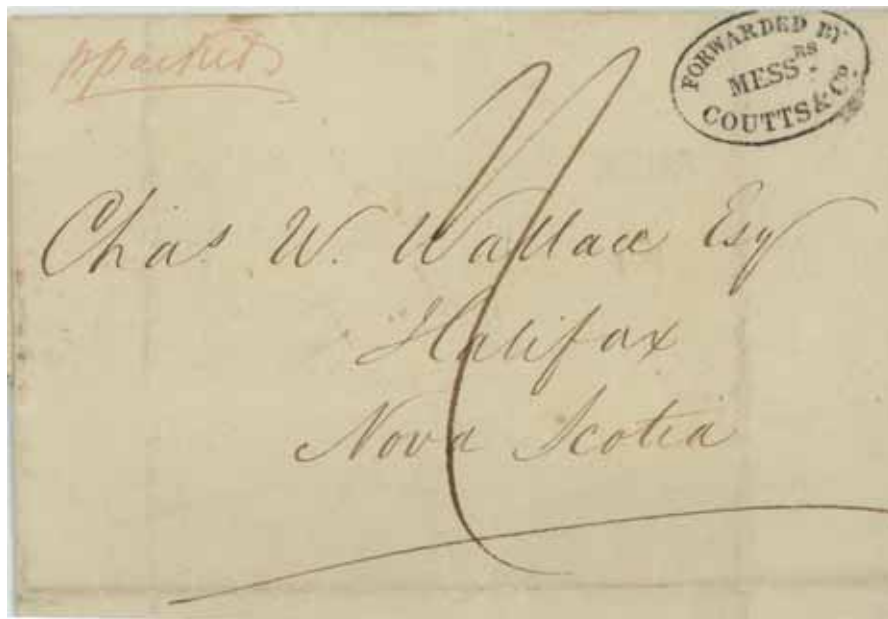 p packet
FORWARDED BY
MESSRS.
COUTTS & Co.
Chas W. Wallace Esq
Halifax
Nova Scotia